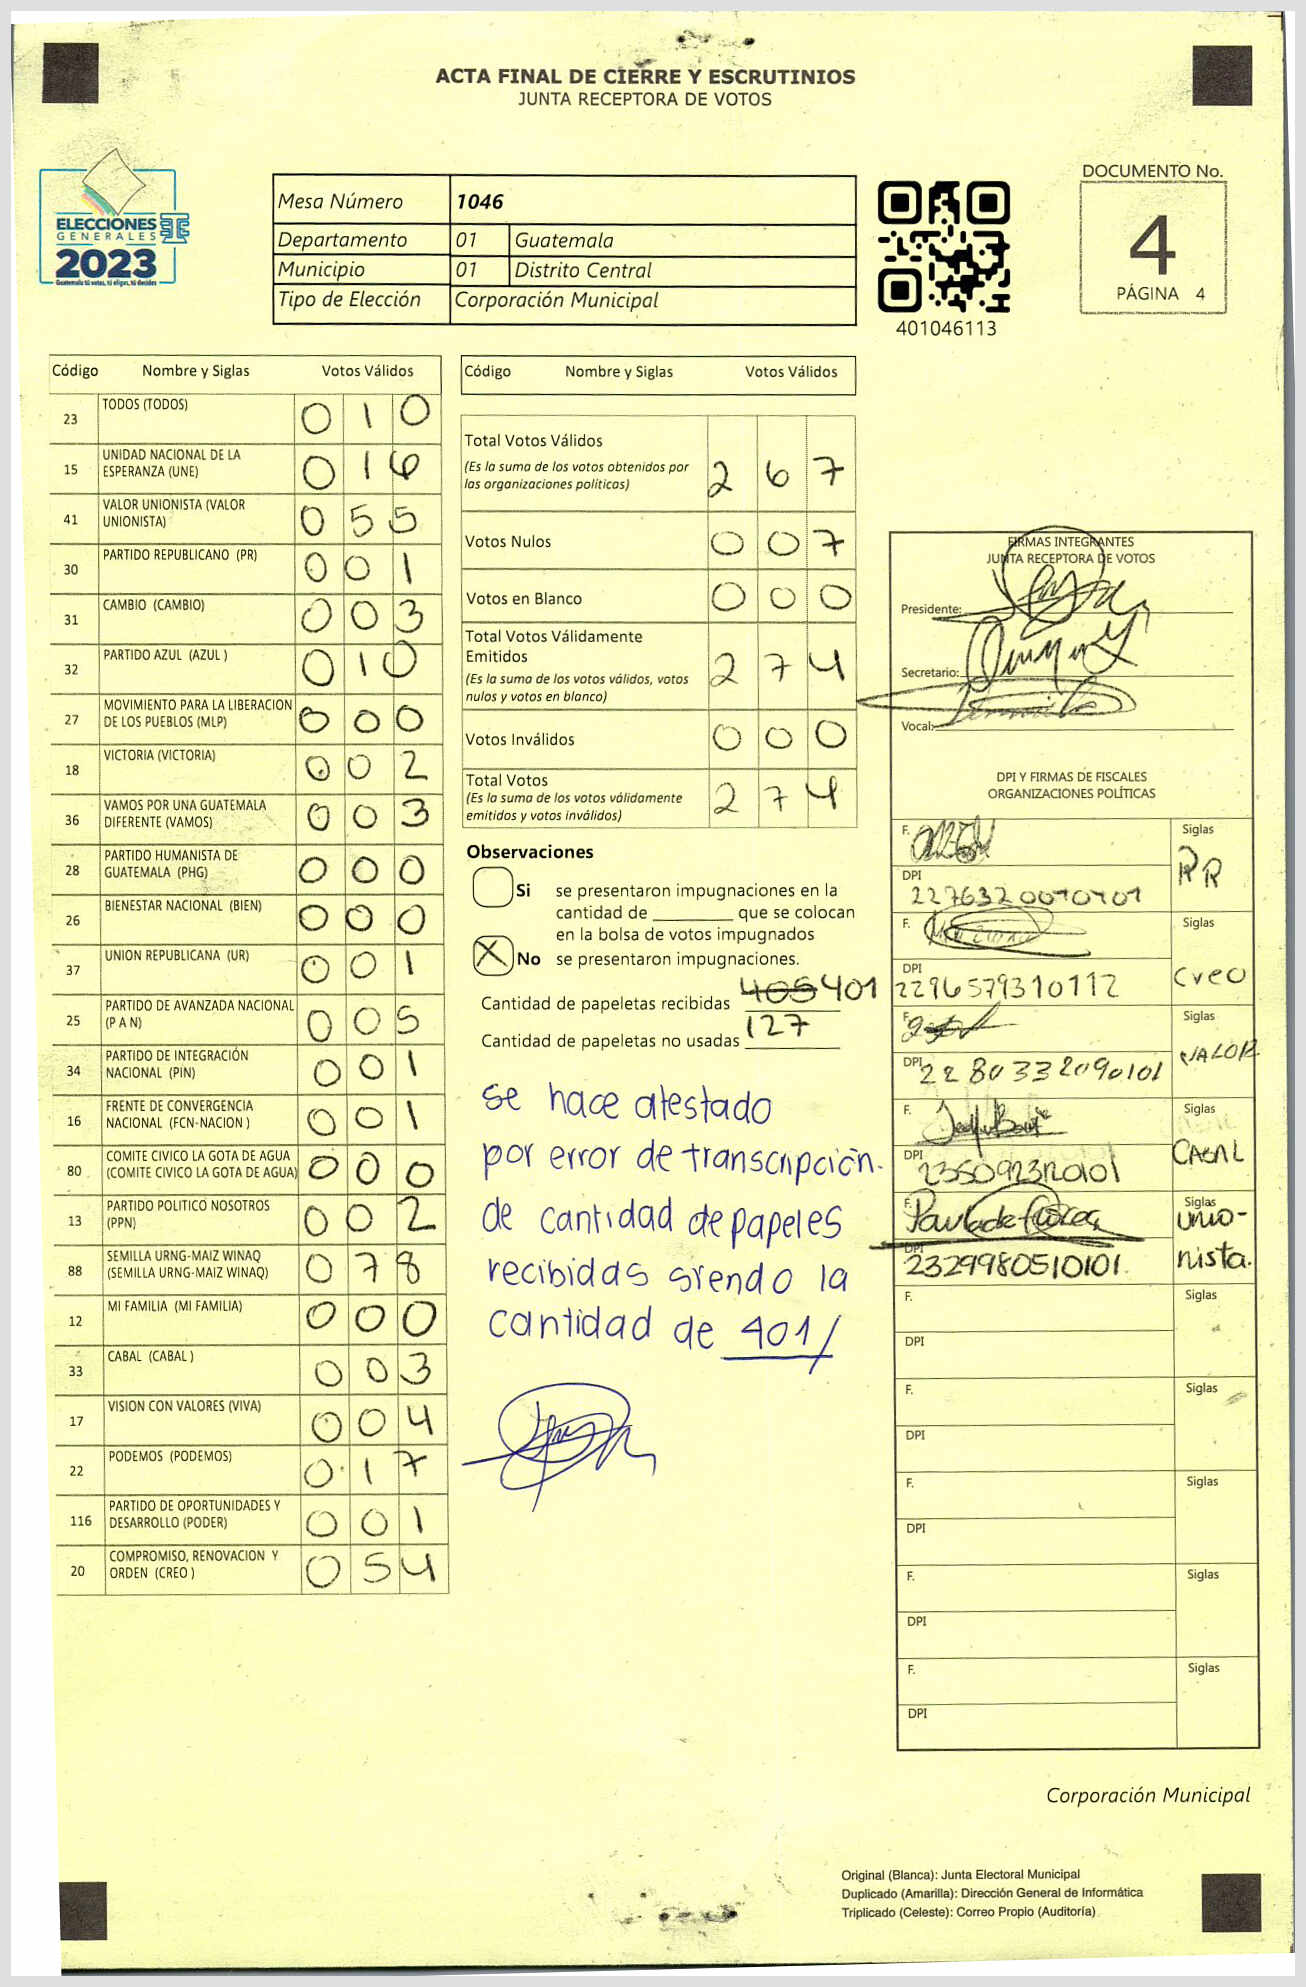 ACTA FINAL DE CIERRE Y ESCRUTINIOS
JUNTA RECEPTORA DE VOTOS
ELECCIONES
GENERALES
2023
Guatemala tú votas, tú eliges, tú decides
Mesa Número 1046
Departamento 01 Guatemala
Municipio 01 Distrito Central
Tipo de Elección Corporación Municipal
401046113
DOCUMENTO No.
4
PÁGINA 4
Código Nombre y Siglas Votos Válidos
23 TODOS (TODOS) 0 1 0
15 UNIDAD NACIONAL DE LA ESPERANZA (UNE) 0 1 6
41 VALOR UNIONISTA (VALOR UNIONISTA) 0 5 5
30 PARTIDO REPUBLICANO (PR) 0 0 1
31 CAMBIO (CAMBIO) 0 0 3
32 PARTIDO AZUL (AZUL ) 0 1 0
27 MOVIMIENTO PARA LA LIBERACION DE LOS PUEBLOS (MLP) 0 0 0
18 VICTORIA (VICTORIA) 0 0 2
36 VAMOS POR UNA GUATEMALA DIFERENTE (VAMOS) 0 0 3
28 PARTIDO HUMANISTA DE GUATEMALA (PHG) 0 0 0
26 BIENESTAR NACIONAL (BIEN) 0 0 0
37 UNION REPUBLICANA (UR) 0 0 1
25 PARTIDO DE AVANZADA NACIONAL (P A N) 0 0 5
34 PARTIDO DE INTEGRACIÓN NACIONAL (PIN) 0 0 1
16 FRENTE DE CONVERGENCIA NACIONAL (FCN-NACION ) 0 0 1
80 COMITE CIVICO LA GOTA DE AGUA (COMITE CIVICO LA GOTA DE AGUA) 0 0 0
13 PARTIDO POLITICO NOSOTROS (PPN) 0 0 2
88 SEMILLA URNG-MAIZ WINAQ (SEMILLA URNG-MAIZ WINAQ) 0 7 8
12 MI FAMILIA (MI FAMILIA) 0 0 0
33 CABAL (CABAL ) 0 0 3
17 VISION CON VALORES (VIVA) 0 0 4
22 PODEMOS (PODEMOS) 0 1 7
116 PARTIDO DE OPORTUNIDADES Y DESARROLLO (PODER) 0 0 1
20 COMPROMISO, RENOVACION Y ORDEN (CREO ) 0 5 4
Código Nombre y Siglas Votos Válidos
Total Votos Válidos 2 6 7
(Es la suma de los votos obtenidos por
las organizaciones políticas)
Votos Nulos 0 0 7
Votos en Blanco 0 0 0
Total Votos Válidamente
Emitidos 2 7 4
(Es la suma de los votos válidos, votos
nulos y votos en blanco)
Votos Inválidos 0 0 0
Total Votos 2 7 4
(Es la suma de los votos válidamente
emitidos y votos inválidos)
Observaciones
Si se presentaron impugnaciones en la
cantidad de ________ que se colocan
en la bolsa de votos impugnados
X No se presentaron impugnaciones.
Cantidad de papeletas recibidas 405 401
Cantidad de papeletas no usadas 127
se hace atestado
por error de transcripción.
de cantidad de papeles
recibidas siendo la
cantidad de 401/
FIRMAS INTEGRANTES
JUNTA RECEPTORA DE VOTOS
Presidente:
Secretario:
Vocal:
DPI Y FIRMAS DE FISCALES
ORGANIZACIONES POLÍTICAS
F. Siglas
PR
DPI
F. Siglas
DPI Creo
2296579310112
F. Siglas
VALOR
DPI 2280332090101
F. Siglas
CABAL
DPI
2350923120101
F. Siglas
Unio-
nista.
DPI
2329980510101.
F. Siglas
DPI
F. Siglas
DPI
F. Siglas
DPI
F. Siglas
DPI
F. Siglas
DPI
Corporación Municipal
Original (Blanca): Junta Electoral Municipal
Duplicado (Amarilla): Dirección General de Informática
Triplicado (Celeste): Correo Propio (Auditoría)